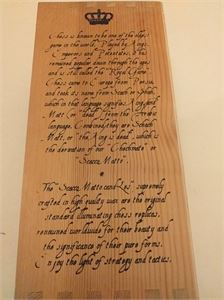 Chess is known to be one of the oldest
game in the world. Played by Kings,
Emperors and Potentates, it has
remained popular down through the ages
and is still called the "Royal Game".
Chess came to Europe from Persia,
and took its name from Scach or Shah,
which in that language signifies King, and
Matt (or dead) from the Arabic
language. Combined they are Schach
Matt, or "the King is dead", which is
the derivation of our "Checkmate" or
"Scacco Matto".
The "Scacco Matto and Les" supremely
crafted in high quality wax are the original
standard illuminating chess replicas,
renowned worldwide for their beauty and
the significance of their pure forms.
Enjoy the light of strategy and tactics.